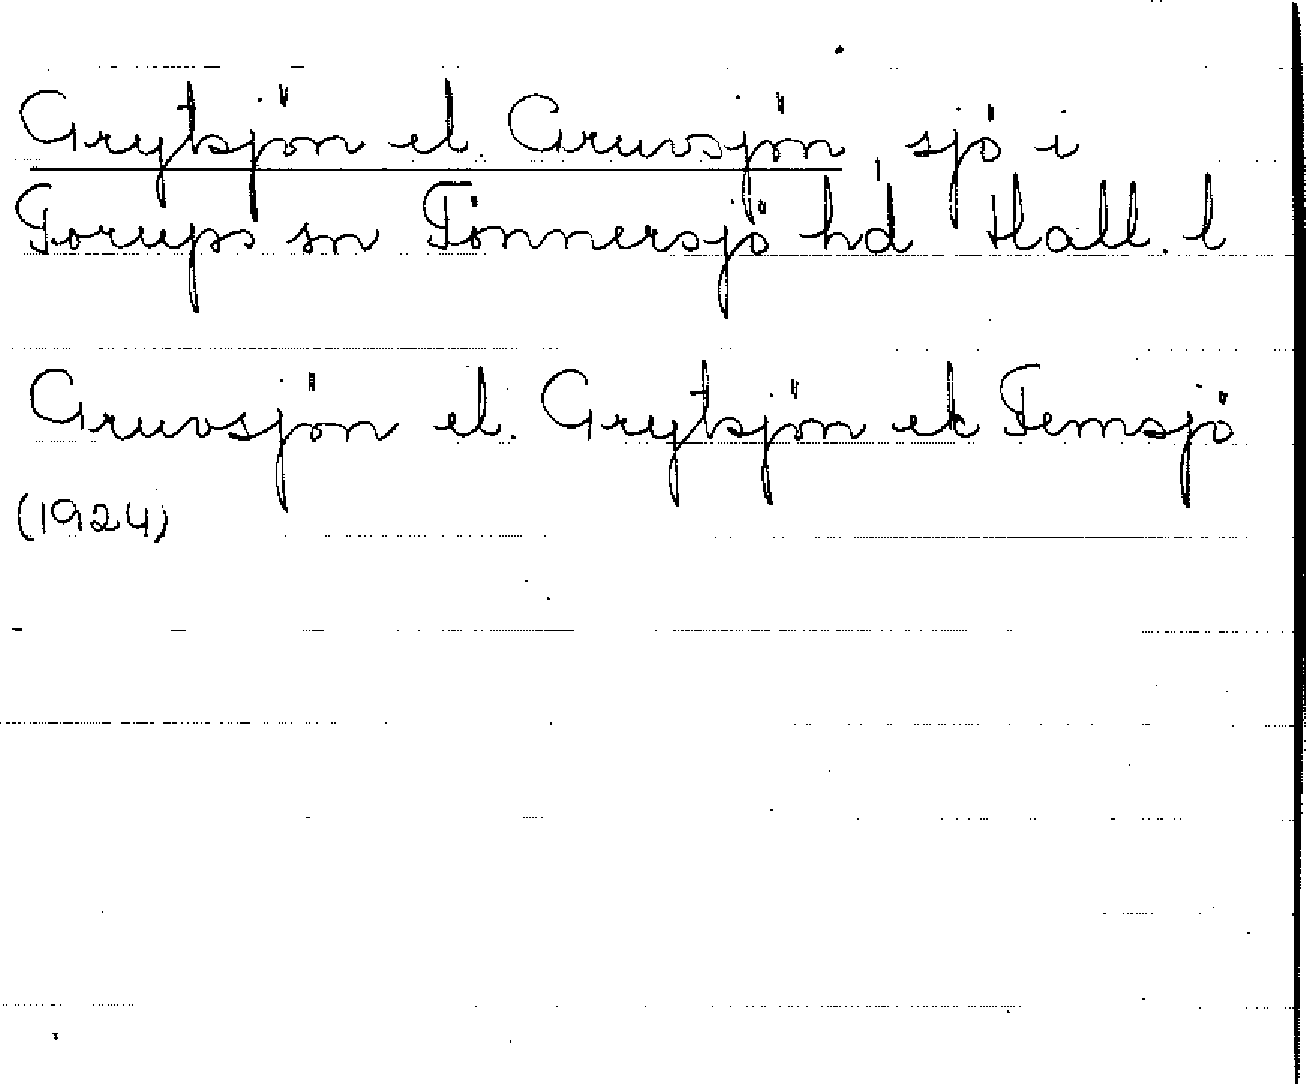 Grytsjön el. Gruvsjön, sjö i
Torups sn Tönnersjö hd Hall. l
Gruvsjön el. Grytsjön ek Femsjö
(1924)